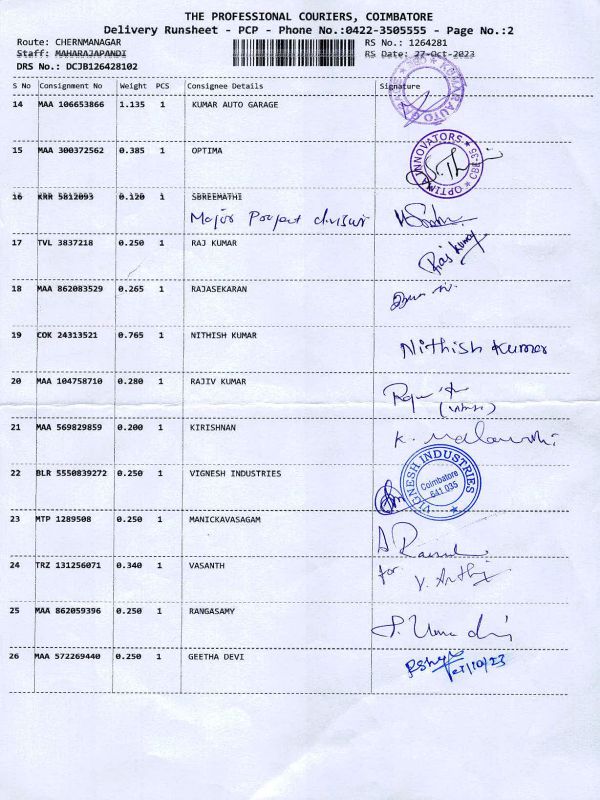 THE PROFESSIONAL COURIERS, COIMBATORE
Delivery Runsheet - PCP - Phone No.:0422-3505555 - Page No.:2
Route: CHERNMANAGAR RS No.: 1264281
Staff: MAHARAJAPANDI RS Date: 27-Oct-2023
DRS No.: DCJB126428102
S No Consignment No Weight PCS Consignee Details Signature
14 MAA 106653866 1.135 1 KUMAR AUTO GARAGE
KUMAR AUTO GARAGE
15 MAA 300372562 0.385 1 OPTIMA
OPTIMA INNOVATORS CBE-35
16 KRR 5812093 0.120 1 SBREEMATHI
Major Project division
17 TVL 3837218 0.250 1 RAJ KUMAR
Raj kumar
18 MAA 862083529 0.265 1 RAJASEKARAN
19 COK 24313521 0.765 1 NITHISH KUMAR
Nithish Kumar
20 MAA 104758710 0.280 1 RAJIV KUMAR
21 MAA 569829859 0.200 1 KIRISHNAN
K.
22 BLR 5550839272 0.250 1 VIGNESH INDUSTRIES
VIGNESH INDUSTRIES
Coimbatore
641 035
23 MTP 1289508 0.250 1 MANICKAVASAGAM
24 TRZ 131256071 0.340 1 VASANTH
for V. Arthi
25 MAA 862059396 0.250 1 RANGASAMY
26 MAA 572269440 0.250 1 GEETHA DEVI
27/10/23